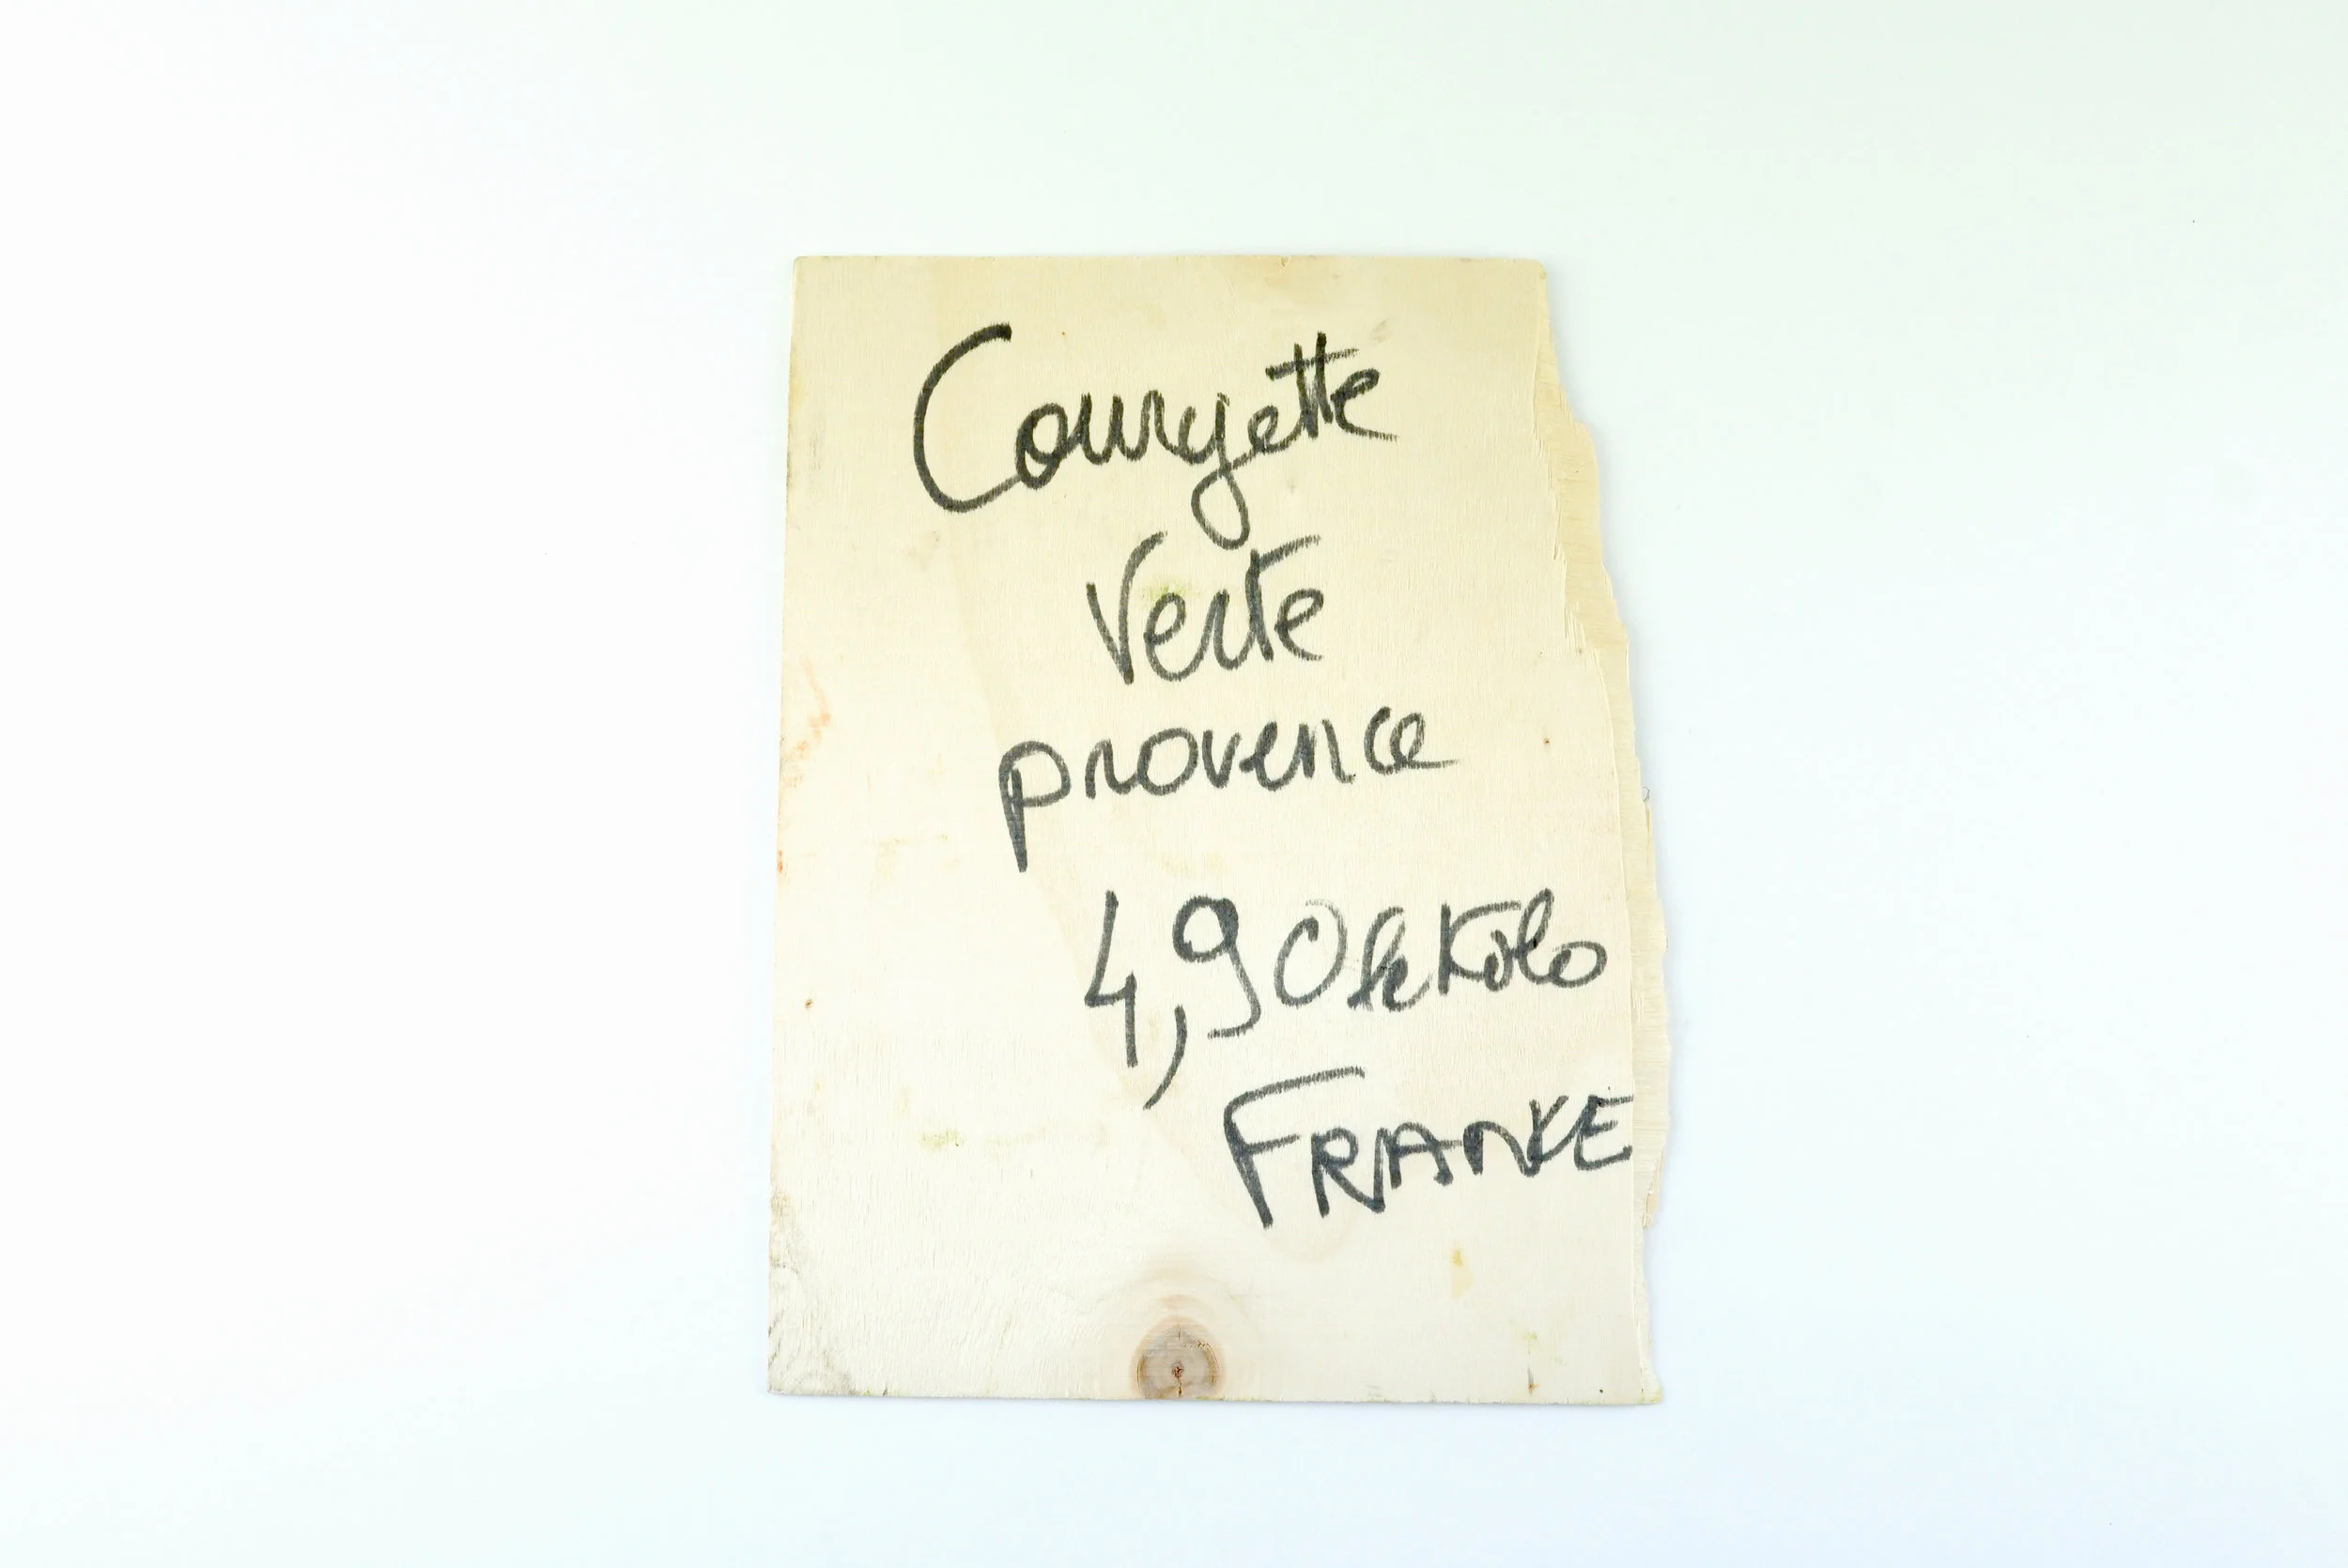 Courgette
Verte
provence
4,90 le Kilo
FRANCE